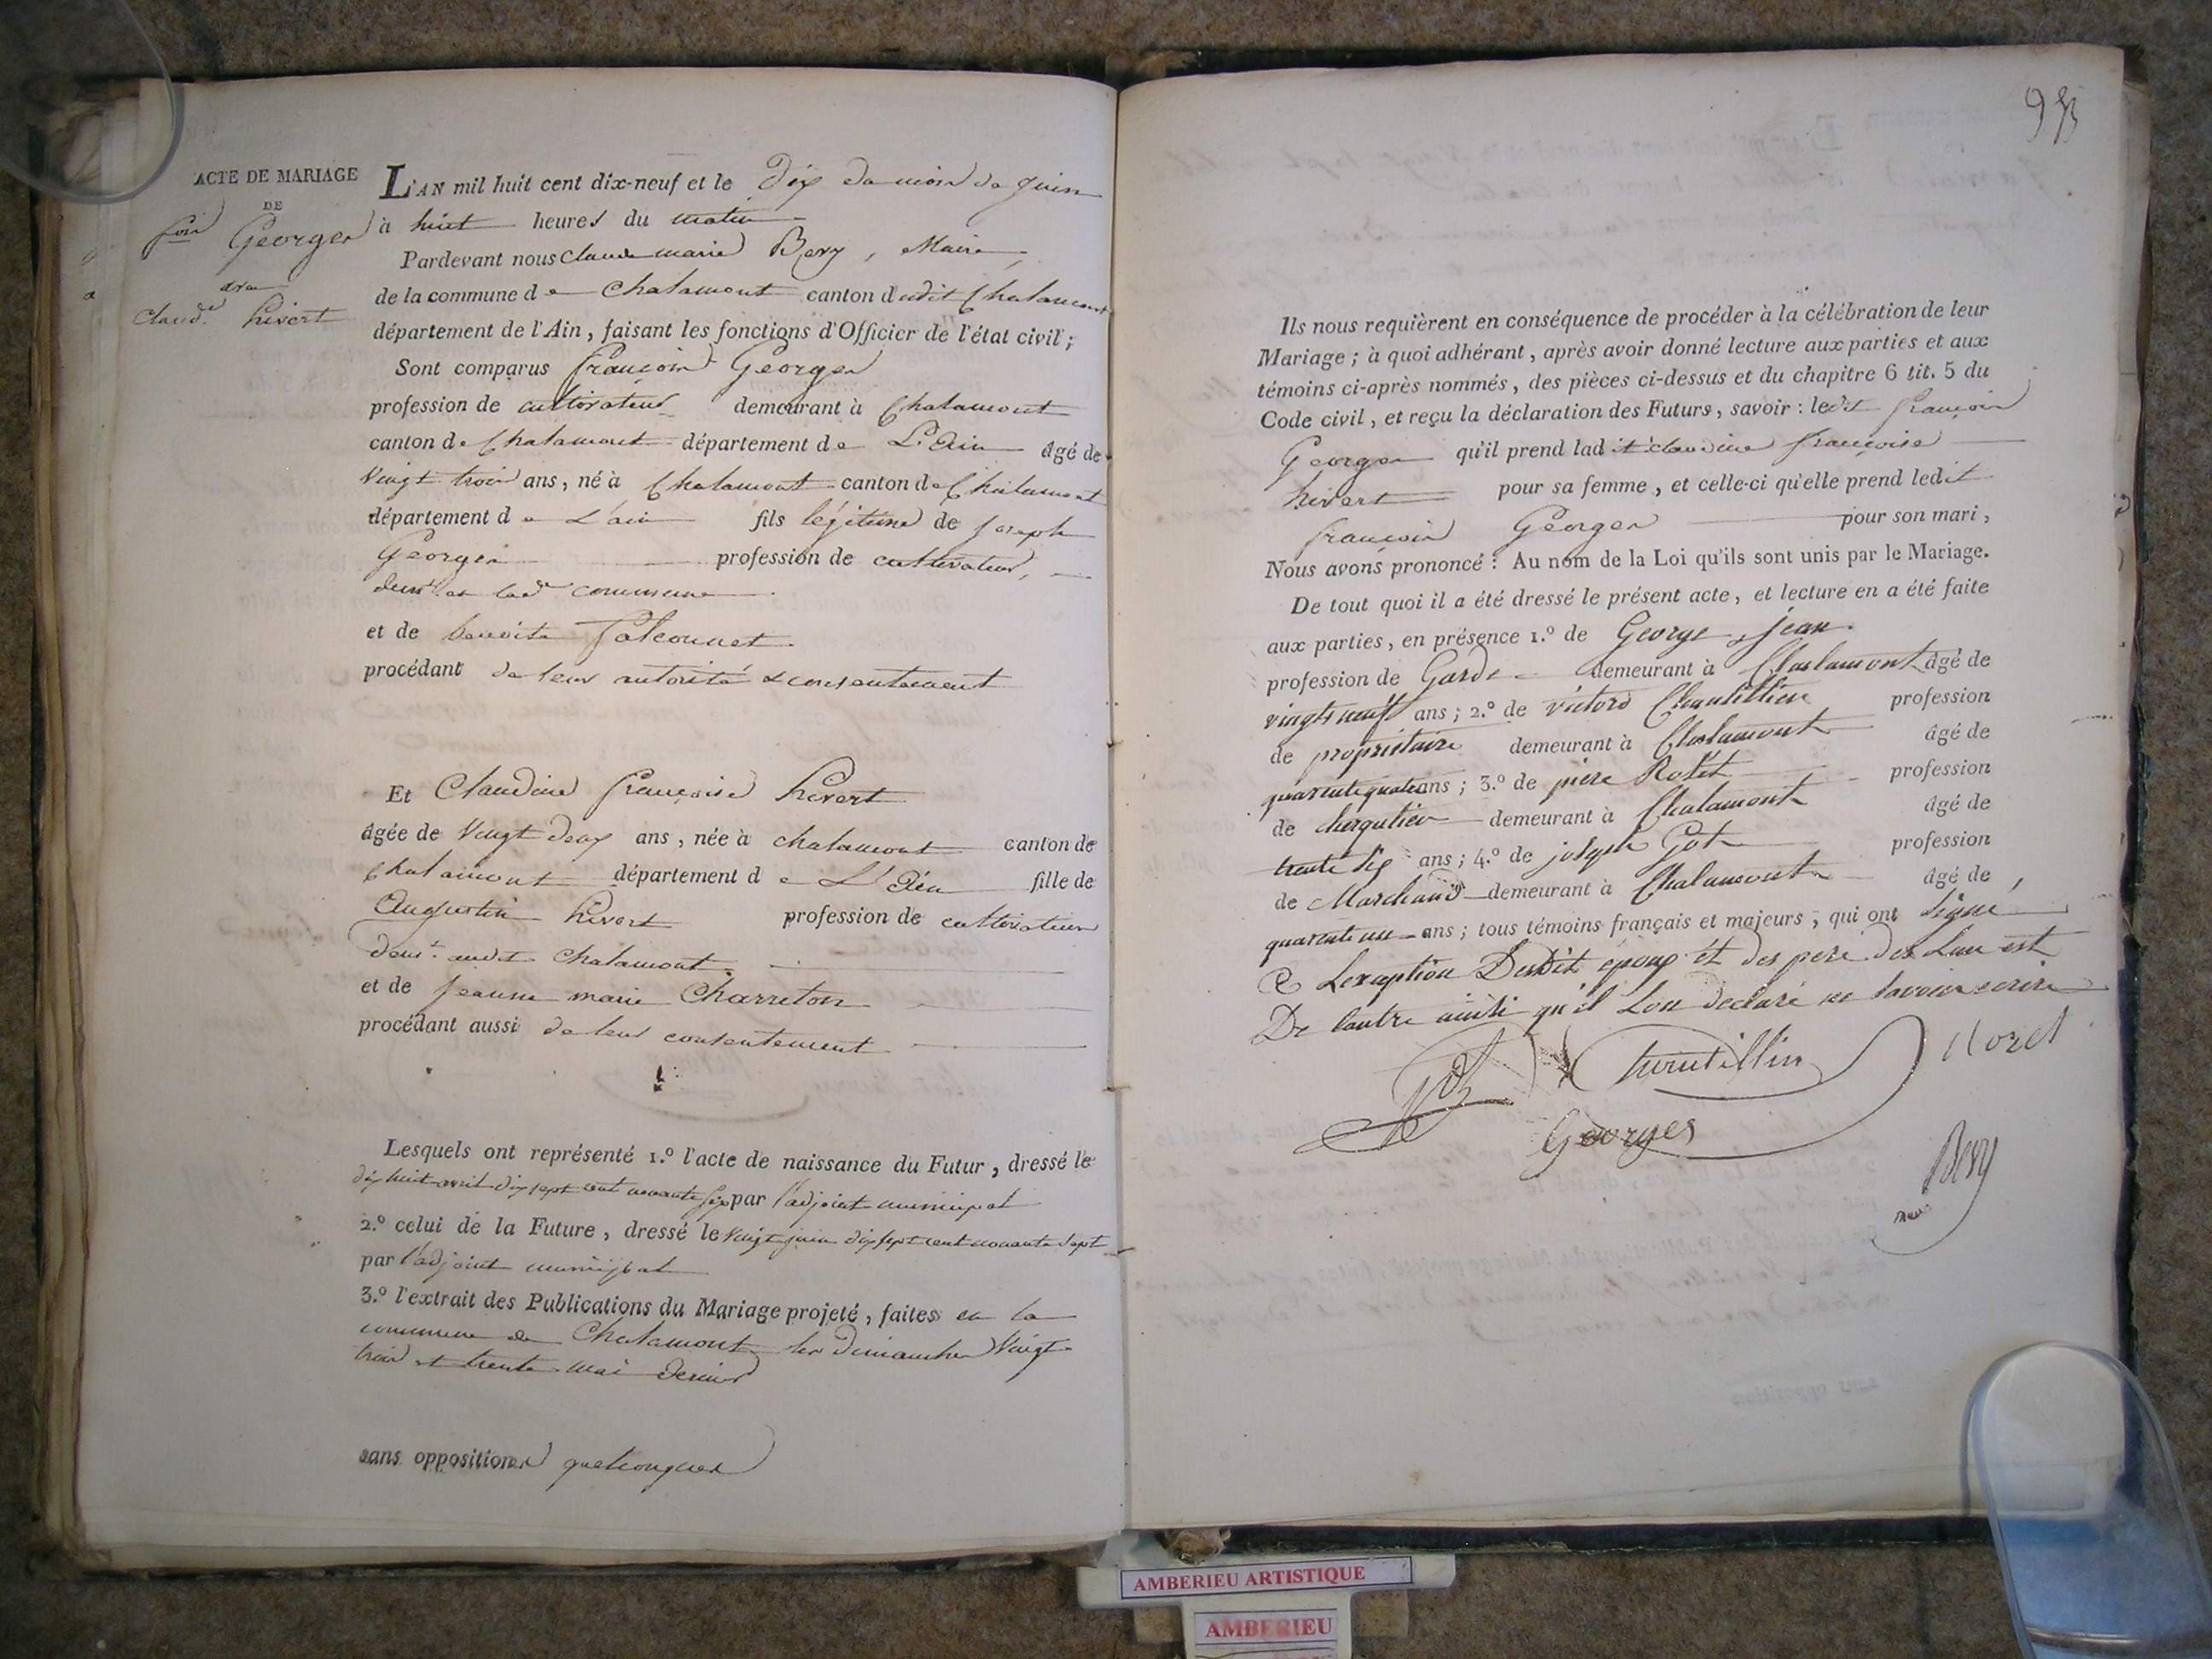 ACTE DE MARIAGE
DE
fois Georges
avec
Claud.e hivert
L'AN mil huit cent dix-neuf et le dix du mois de juin
à huit heures du matin
Pardevant nous Claude marie Bery, Maire
de la commune de Chalamont canton dudit Chalamont
département de l'Ain, faisant les fonctions d'Officier de l'état civil;
Sont comparus françois Georges
profession de cultivateur demeurant à Chalamont
canton de Chalamont département de L'Ain âgé de
Vingt trois ans, né à Chalamont canton de Chalamont
département de L'ain fils légitime de joseph
Georges profession de cultivateur,
demt. en lade commune
et de benoite falconnet
procédant de leur autorité & consentement
Et Claudine françoise hivert
âgée de Vingt deux ans, née à chalamont canton de
Chalamont département de L'Ain fille de
Augustin hivert profession de cultivateur
demt. audit Chalamont
et de jeanne marie Charreton
procédant aussi de leur consentement
Lesquels ont représenté 1.º l'acte de naissance du Futur, dressé le
dix huit avril dix sept cent nonante six par l'adjoint municipal
2.º celui de la Future, dressé le vingt juin dix sept cent nonante sept
par l'adjoint municipal
3.º l'extrait des Publications du Mariage projeté, faites en la
commune de Chalamont les dimanches Vingt
trois et trente mai dernier
sans oppositions quelconques
Ils nous requièrent en conséquence de procéder à la célébration de leur
Mariage; à quoi adhérant, après avoir donné lecture aux parties et aux
témoins ci-après nommés, des pièces ci-dessus et du chapitre 6 tit. 5 du
Code civil, et reçu la déclaration des Futurs, savoir: ledit françois
Georges qu'il prend ladite claudine françoise
hivert pour sa femme, et celle-ci qu'elle prend ledit
françois Georges pour son mari,
Nous avons prononcé: Au nom de la Loi qu'ils sont unis par le Mariage.
De tout quoi il a été dressé le présent acte, et lecture en a été faite
aux parties, en présence 1.º de George jean
profession de Garde demeurant à Chalamont âgé de
vingts neuf ans; 2.º de victord Chantillien profession
de propriétaire demeurant à Chalamont âgé de
quarente quatre ans; 3.º de piere profession
de demeurant à Chalamont âgé de
trente six ans; 4.º de joseph Got profession
de Marchand demeurant à Chalamont âgé de
quarente un ans; tous témoins français et majeurs, qui ont signé
a Lexeption Desdit epoux et des pere de Lun est
De lautre ainsi qu'il Lon declaré ne savoir ecrire
Georges
Bery
Maire
AMBERIEU ARTISTIQUE
AMBERIEU